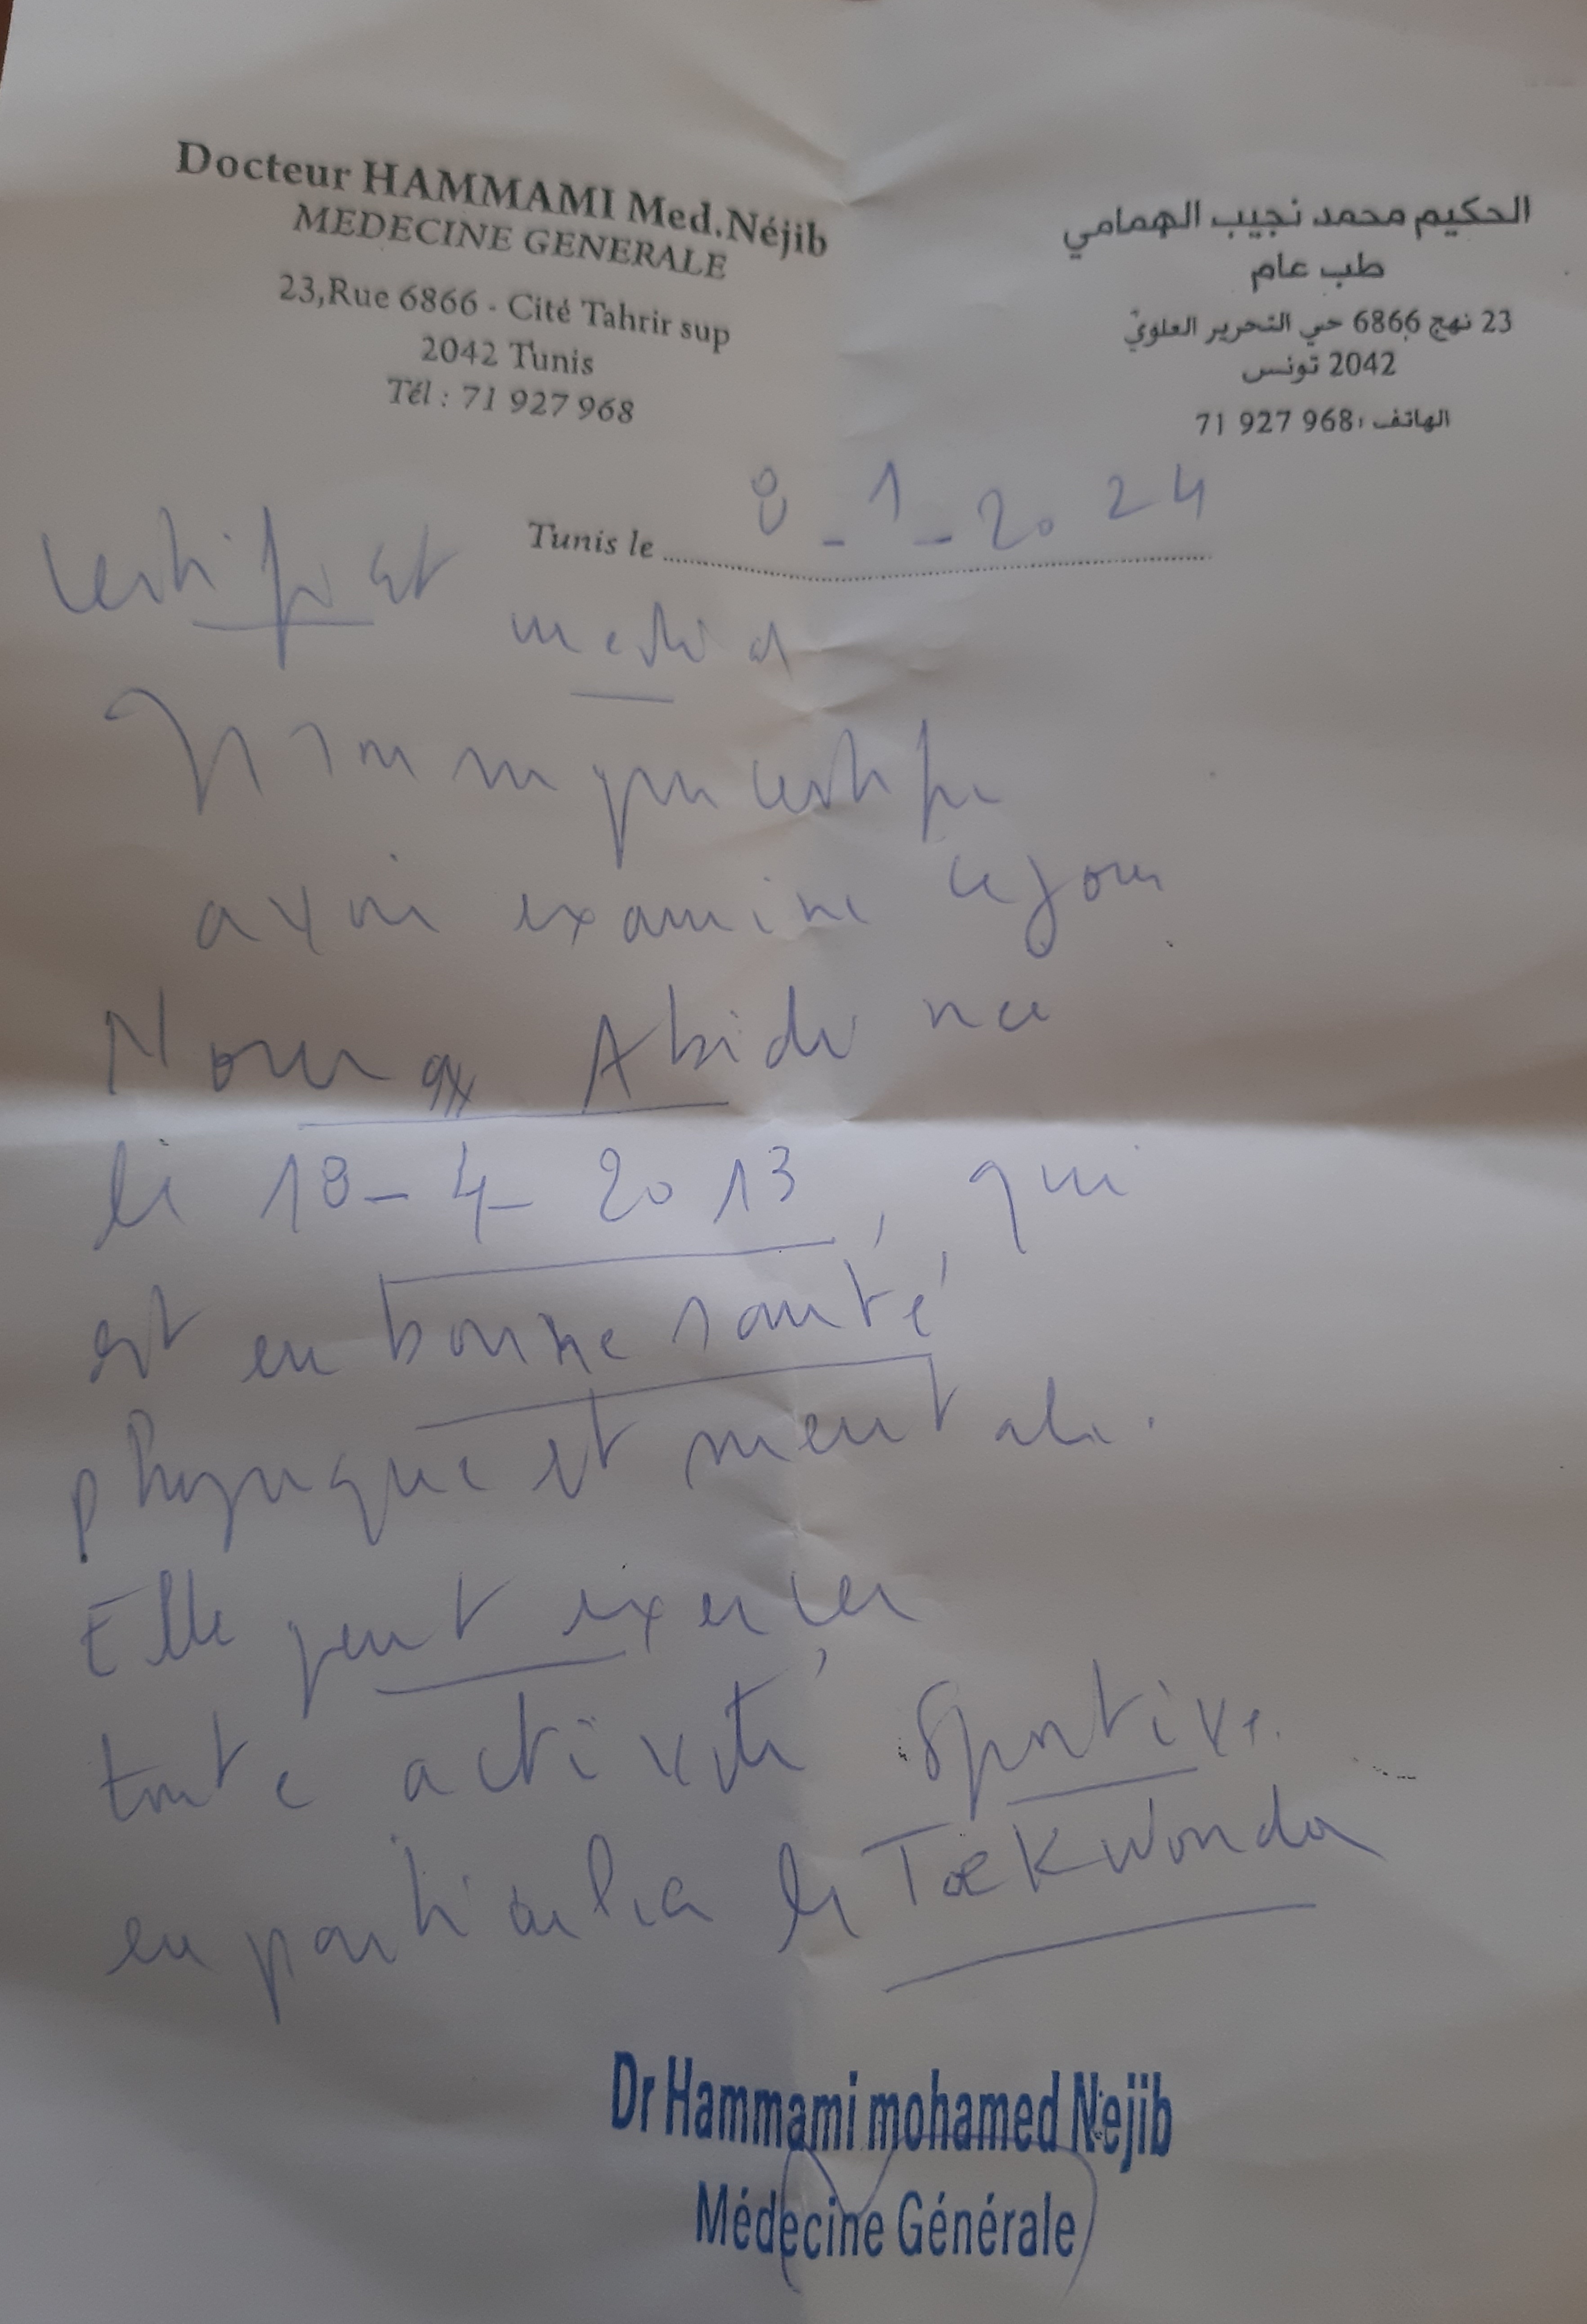 Docteur HAMMAMI Med.Néjib
MEDECINE GENERALE
23,Rue 6866 - Cité Tahrir sup
2042 Tunis
Tél : 71 927 968
الحكيم محمد نجيب الهمامي
طب عام
23 نهج 6866 حي التحرير العلوي
2042 تونس
الهاتف : 71 927 968
Tunis le 8-1-2024
Certificat
medical
certifie
avoir examine ce jour
Nour Abidi nee
le 18-4-2013, qui
est en bonne santé
physique et mentale.
Elle peut exercer
toute activité sportive.
en particulier le TaeKwondo
Dr Hammami mohamed Nejib
Médecine Générale